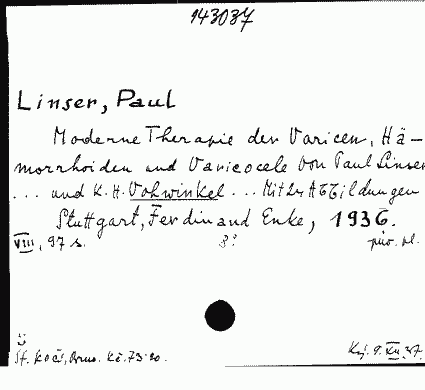 143037
Linser, Paul
Moderne Therapie der Varicen, Hä-
morrhoiden und Varicocele von Paul Linser
... und K. H. Vohwinkel ... Mit 24 Abbildungen
Stuttgart, Ferdinand Enke, 1936.
VIII, 97 s. 8° pův. pl.
St. Kočí, Brno. Kč. 73.20. 9.XII.37.